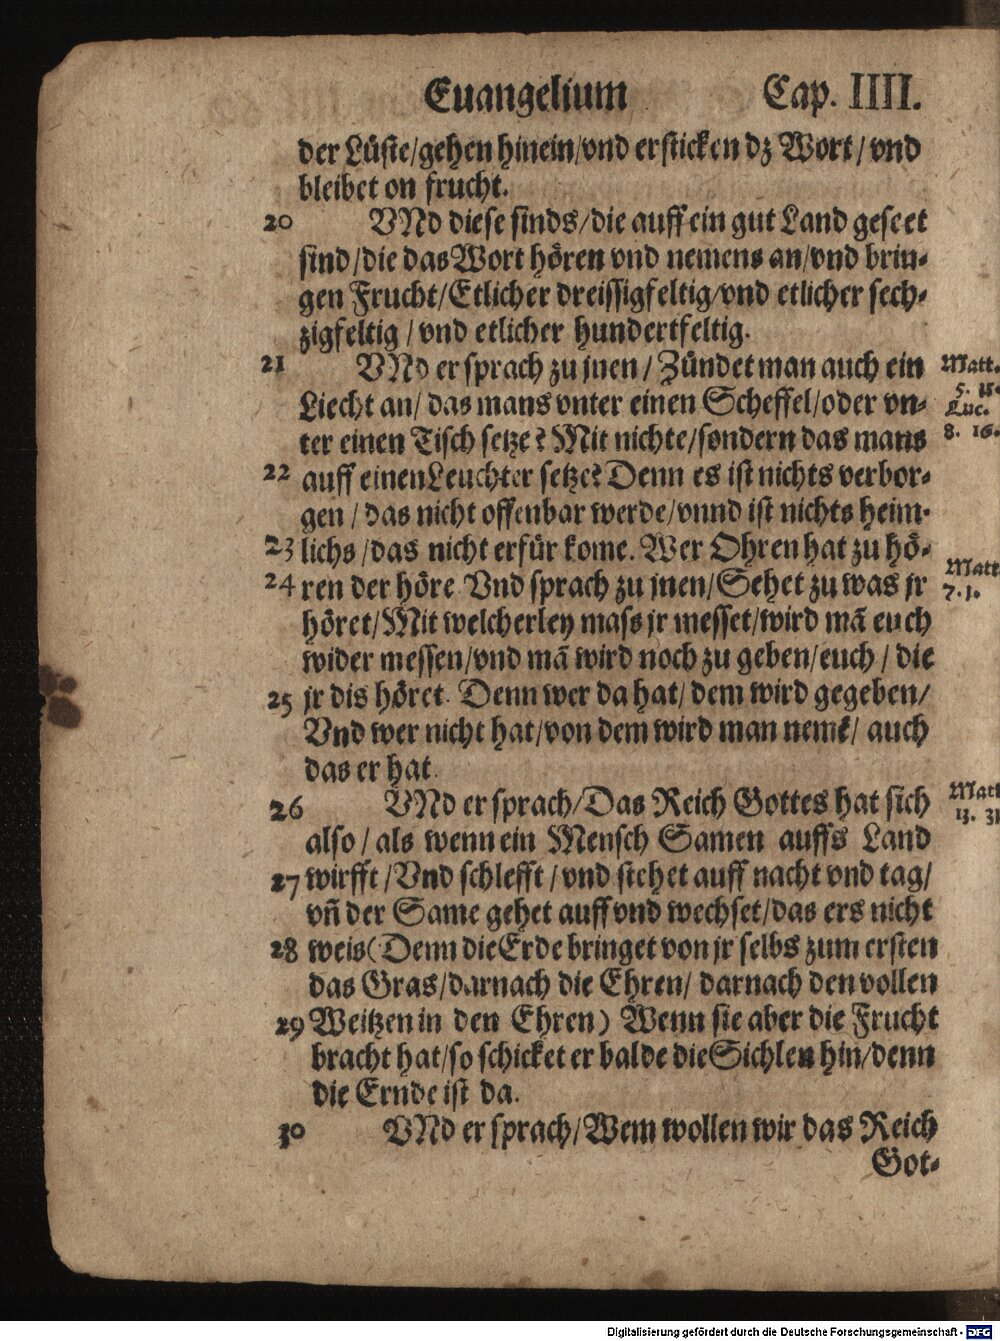 Euangelium Cap. IIII.
der Lüste/gehen hinein/vnd ersticken dz Wort/ vnd
bleibet on frucht.
20 VNd diese sinds/die auff ein gut Land geseet
sind/die das Wort hören vnd nemens an/vnd brin-
gen Frucht/Etlicher dreissigfeltig/vnd etlicher sech-
zigfeltig/ vnd etlicher hundertfeltig.
21 VNd er sprach zu jnen/ Zündet man auch ein
Matt.
Liecht an/ das mans vnter einen Scheffel/oder vn-
5. 15.
Luc.
ter einen Tisch setze? Mit nichte/sondern das mans
8. 16.
22 auff einen Leuchter setze? Denn es ist nichts verbor-
gen/ das nicht offenbar werde/vnnd ist nichts heim-
23 lichs/das nicht erfür kome. Wer Ohren hat zu hö-
24 ren der höre. Vnd sprach zu jnen/Sehet zu was jr
Matt
7. 1.
höret/Mit welcherley mass jr messet/wird mā euch
wider messen/vnd mā wird noch zu geben/euch/ die
25 jr dis höret. Denn wer da hat/ dem wird gegeben/
Vnd wer nicht hat/von dem wird man nemē/ auch
das er hat.
26 VNd er sprach/Das Reich Gottes hat sich
Matt
13. 31
also/ als wenn ein Mensch Samen auffs Land
27 wirfft/Vnd schlefft/vnd stehet auff nacht vnd tag/
vñ der Same gehet auff vnd wechset/das ers nicht
28 weis(Denn die Erde bringet von jr selbs zum ersten
das Gras/darnach die Ehren/ darnach den vollen
29 Weitzen in den Ehren) Wenn sie aber die Frucht
bracht hat/so schicket er balde die Sichlen hin/denn
die Ernde ist da.
30 VNd er sprach/Wem wollen wir das Reich
Got-
Digitalisierung gefördert durch die Deutsche Forschungsgemeinschaft - DFG